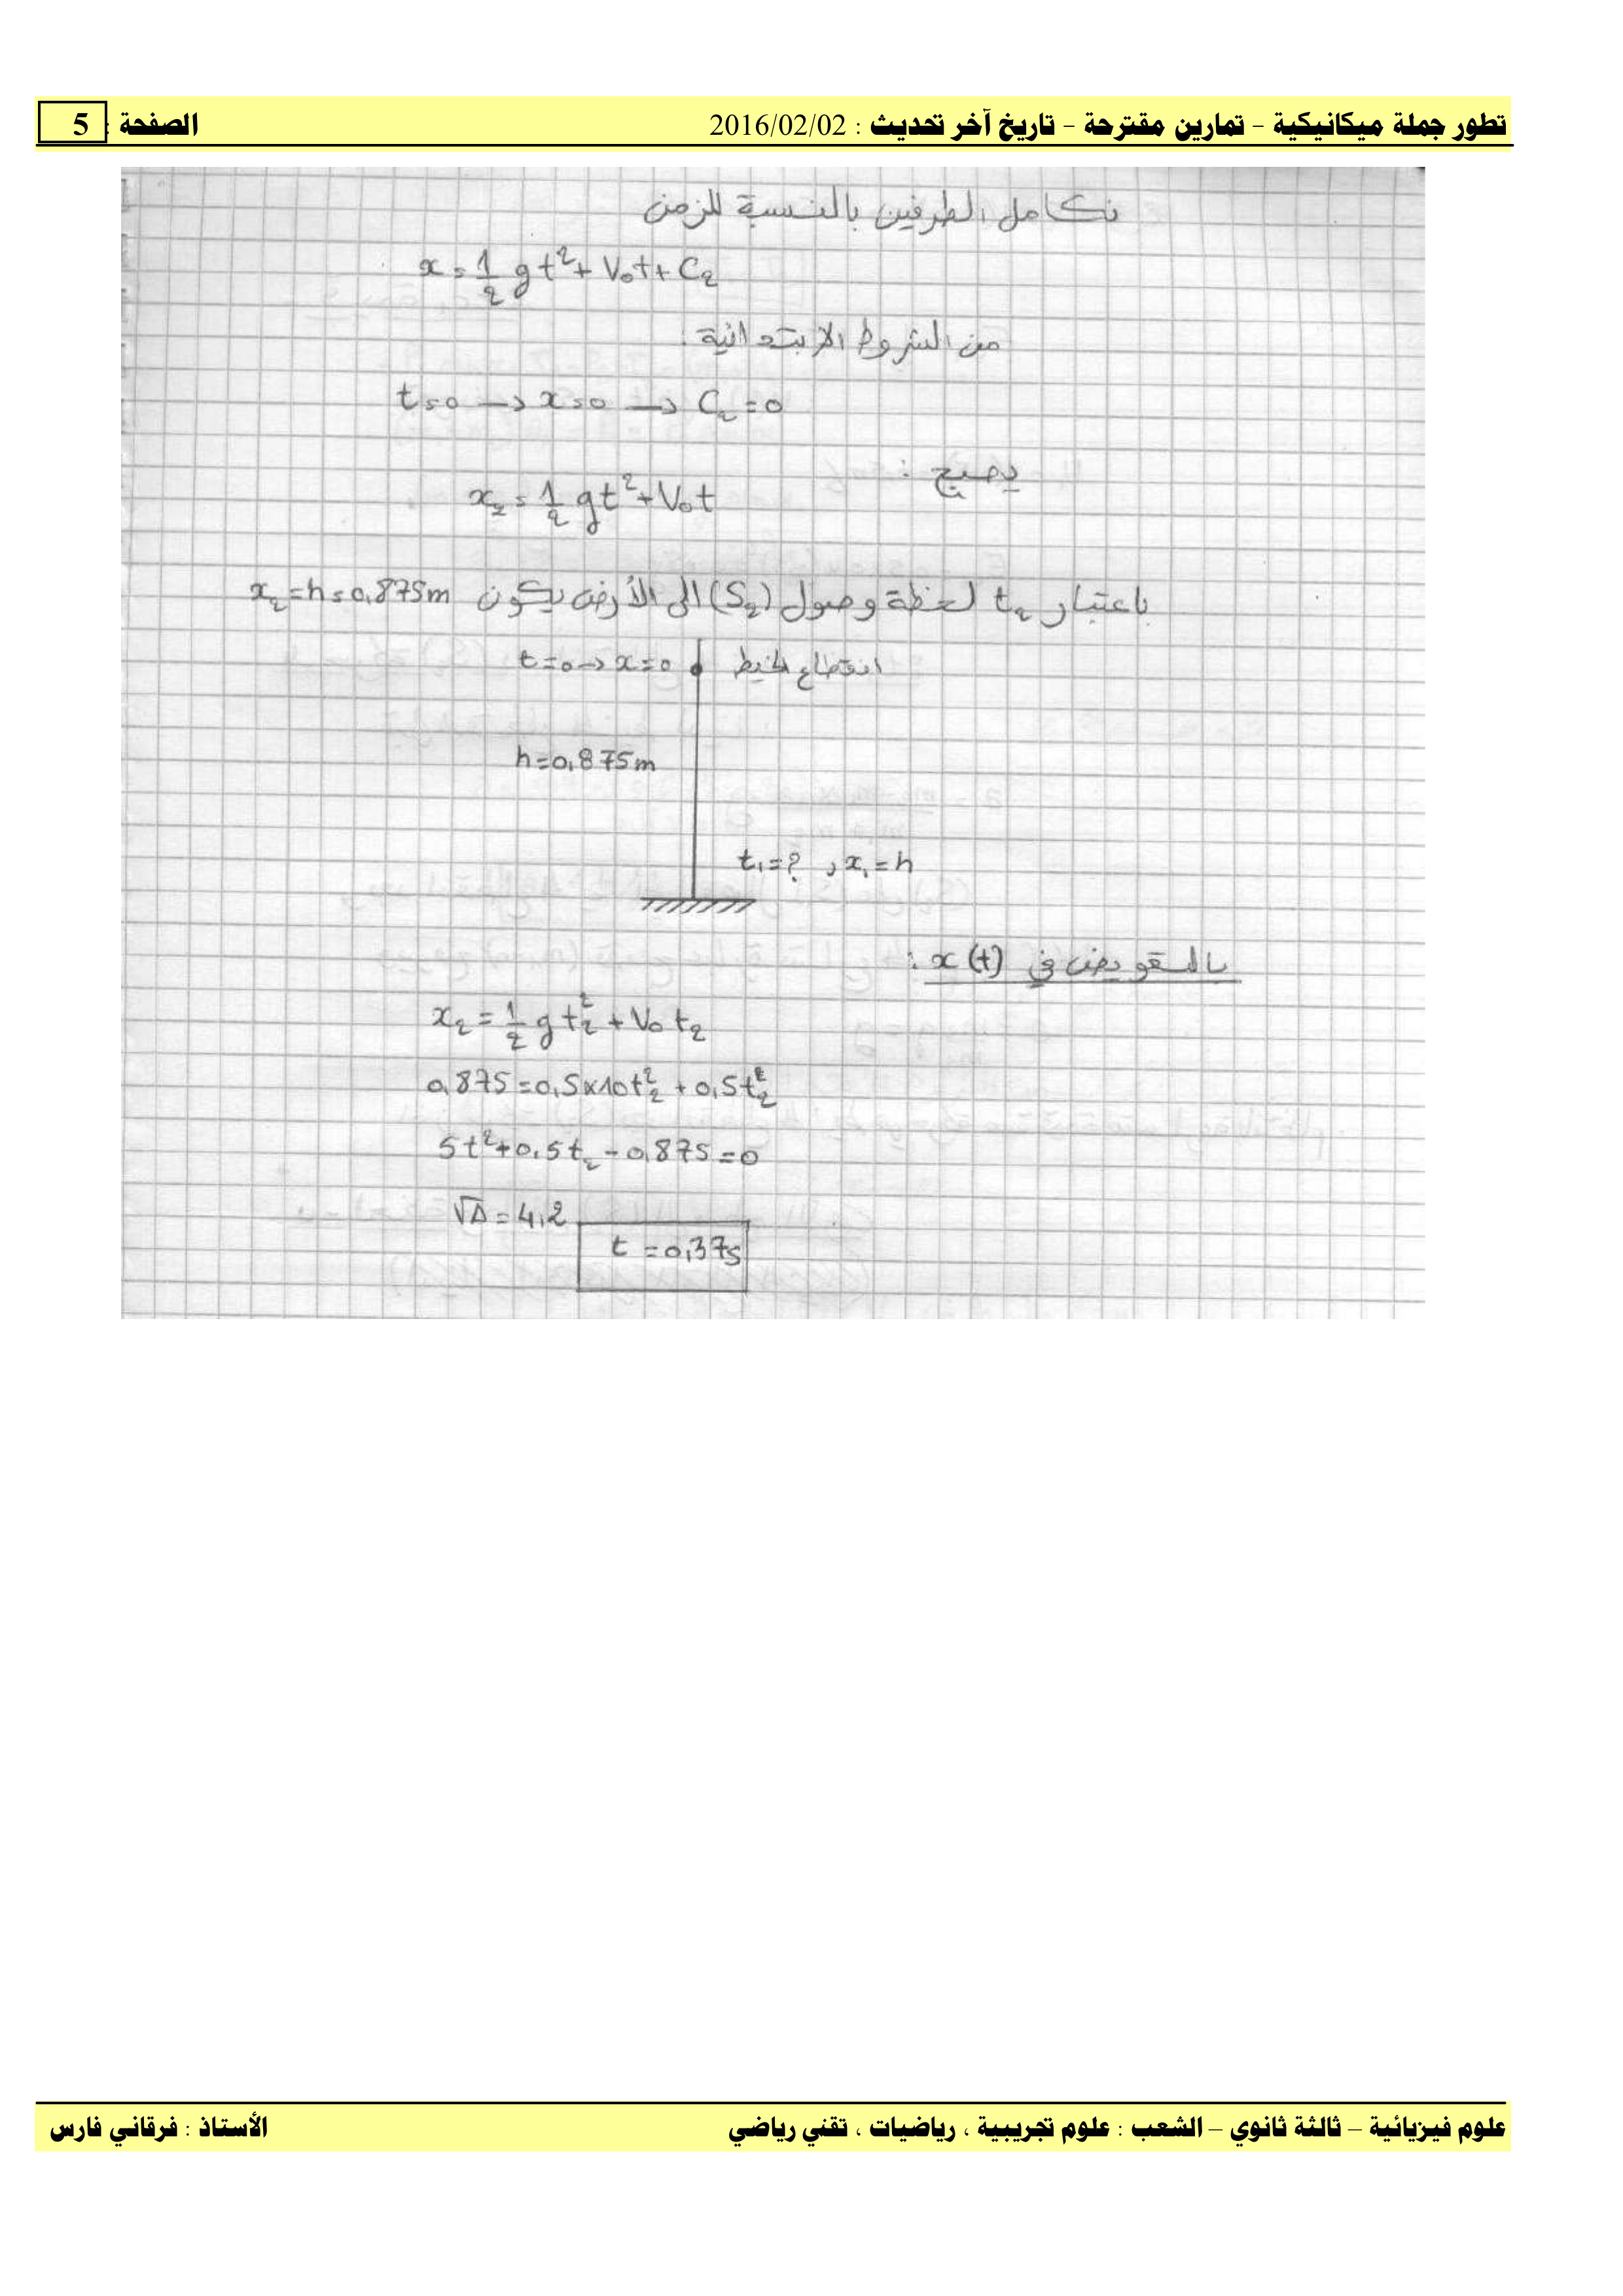 تطور جملة ميكانيكية - تمارين مقترحة - تاريخ آخر تحديث : 2016/02/02 الصفحة : 5
نكامل الطرفين بالنسبة للزمن
x = 1/2 g t² + V₀t + C₂
من الشروط الابتدائية :
t = 0 → x = 0 → C₂ = 0
يصبح :
x₂ = 1/2 g t² + V₀t
باعتبار t₂ لحظة وصول (S₂) الى الأرض يكون x₂ = h = 0,875m
t = 0 → x = 0 انقطاع الخيط
h = 0,875m
t₁ = ? , x₁ = h
بالتعويض في x(t) :
x₂ = 1/2 g t₂² + V₀ t₂
0,875 = 0,5×10t₂² + 0,5t₂²
5t² + 0,5t₂ - 0,875 = 0
√Δ = 4,2
t = 0,37s
علوم فيزيائية – ثالثة ثانوي – الشعب : علوم تجريبية ، رياضيات ، تقني رياضي الأستاذ : فرقاني فارس